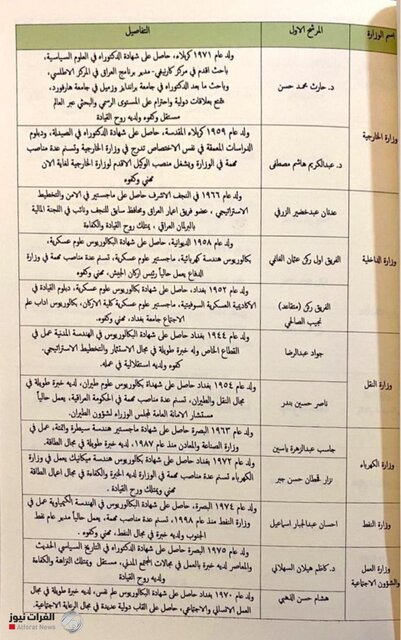 اسم الوزارة
المرشح الاول
التفاصيل
وزارة الخارجية
د. حارث محمد حسن
ولد عام ١٩٧١ كربلاء، حاصل على شهادة الدكتوراه في العلوم السياسية،
باحث اقدم في مركز كارنيغي- مدير برنامج العراق في المركز الاطلسي،
وباحث ما بعد الدكتوراه في جامعة برانديز وزميل في جامعة هارفورد،
يتمتع بعلاقات دولية واحترام على المستوى الرسمي والبحثي عبر العالم
مستقل وكفوء ولديه روح القيادة
د. عبدالكريم هاشم مصطفى
ولد عام ١٩٥٩ كربلاء المقدسة، حاصل على شهادة الدكتوراه في الصيدلة، ودبلوم
الدراسات المعمقة في نفس الاختصاص تدرج في وزارة الخارجية وتسنم عدة مناصب
مهمة في الوزارة ويشغل منصب الوكيل الاقدم لوزارة الخارجية لغاية الان
مهني وكفوء
وزارة الداخلية
عدنان عبدخضير الزرفي
ولد عام ١٩٦٦ في النجف الاشرف حاصل على ماجستير في الامن والتخطيط
الاستراتيجي، عضو فريق اعمار العراق ومحافظ سابق للنجف ونائب في اللجنة المالية
بالبرلمان العراقي، يمتلك روح القيادة والكفاءة
الفريق اول ركن عثمان الغانمي
ولد عام ١٩٥٨ الديوانية، حاصل على شهادة البكالوريوس علوم عسكرية،
بكالوريوس هندسة كهربائية، ماجستير علوم عسكرية، تسنم عدة مناصب مهمة في وزارة
الدفاع يعمل حالياً رئيس اركان الجيش، مهني وكفوء
الفريق ركن (متقاعد)
نجيب الصالحي
ولد عام ١٩٥٢ بغداد، حاصل على شهادة البكالوريوس علوم عسكرية، دبلوم القيادة في
الاكاديمية العسكرية السوفيتية، ماجستير علوم عسكرية كلية الاركان، بكالوريوس اداب علم
الاجتماع جامعة بغداد، مهني وكفوء
وزارة النقل
جواد عبدالرضا
ولد عام ١٩٤٤ بغداد حاصل على شهادة البكالوريوس في الهندسة المدنية عمل في
القطاع الخاص وله خبرة طويلة في مجال الاستثمار والتخطيط الاستراتيجي،
كفوء ولديه استقلالية في عمله.
ناصر حسين بندر
ولد عام ١٩٥٤ بغداد حاصل على شهادة بكالوريوس علوم طيران، لديه خبرة طويلة في
مجال النقل والطيران، تسنم عدة مناصب مهمة في الحكومة العراقية، يعمل حالياً
مستشار الامانة العامة لمجلس الوزراء لشؤون الطيران.
وزارة الكهرباء
جاسب عبدالزهرة ياسين
ولد عام ١٩٦٣ البصرة حاصل على شهادة ماجستير هندسة سيطرة واتمتة، عمل في
وزارة الصناعة والمعادن منذ عام ١٩٨٧، له خبرة طويلة في مجال الطاقة.
نزار قحطان حسن جبر
ولد عام ١٩٧٢ بغداد، حاصل على شهادة بكالوريوس هندسة ميكانيك يعمل في وزارة
الكهرباء تسنم عدة مناصب في الوزارة لديه الخبرة والكفاءة في مجال اعمال الطاقة
مهني ويمتلك روح القيادة .
وزارة النفط
احسان عبدالجبار اسماعيل
ولد عام ١٩٧٤ البصرة، حاصل على شهادة البكالوريوس في الهندسة الكيمياوية عمل في
وزارة النفط منذ عام ١٩٩٨، تسنم عدة مناصب مهمة، يعمل حالياً مدير عام نفط
الجنوب ولديه خبرة في مجال النفط، مهني وكفوء
وزارة العمل
والشؤون الاجتماعية
د. كاظم هيلان السهلاني
ولد عام ١٩٧٥ البصرة حاصل على شهادة الدكتوراه في التاريخ السياسي الحديث
والمعاصر لديه خبرة بالعمل في مجالات المجتمع المدني، مستقل ويمتلك النزاهة والكفاءة
ولديه روح القيادة.
هشام حسن الذهبي
ولد عام ١٩٧٠ بغداد حاصل على شهادة البكالوريوس علم نفس، لديه خبرة طويلة في مجال
العمل الانساني والاجتماعي، حاصل على القاب دولية عديدة في مجال الرعاية الاجتماعية.
الفرات نيوز
Alforat News